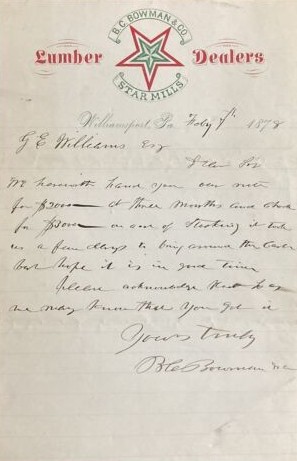 B.C. BOWMAN & CO
Lumber Dealers
STAR MILLS
Williamsport, Pa Feby 7th 1878
G E Williams Esq
Dear Sir
We herewith hand you our note
for $2000— at three months and check
for
us a few days to bring around the
but hope it is in good time
Please acknowledge that
we may know that you got it
Yours truly
B C Bowman & Co